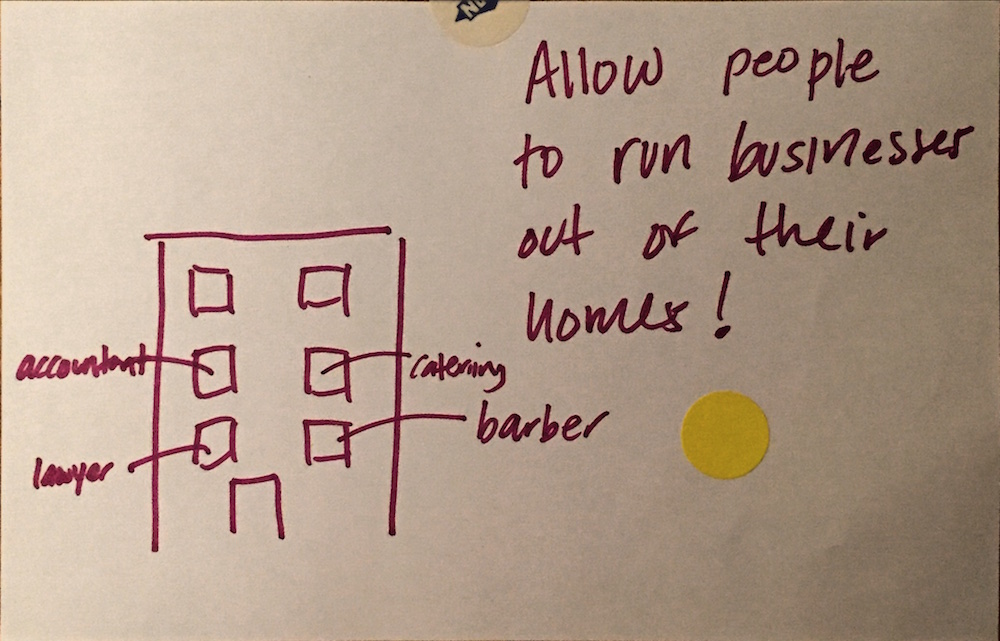 Allow people
to run businesses
out of their
homes!
accountant
catering
barber
lawyer